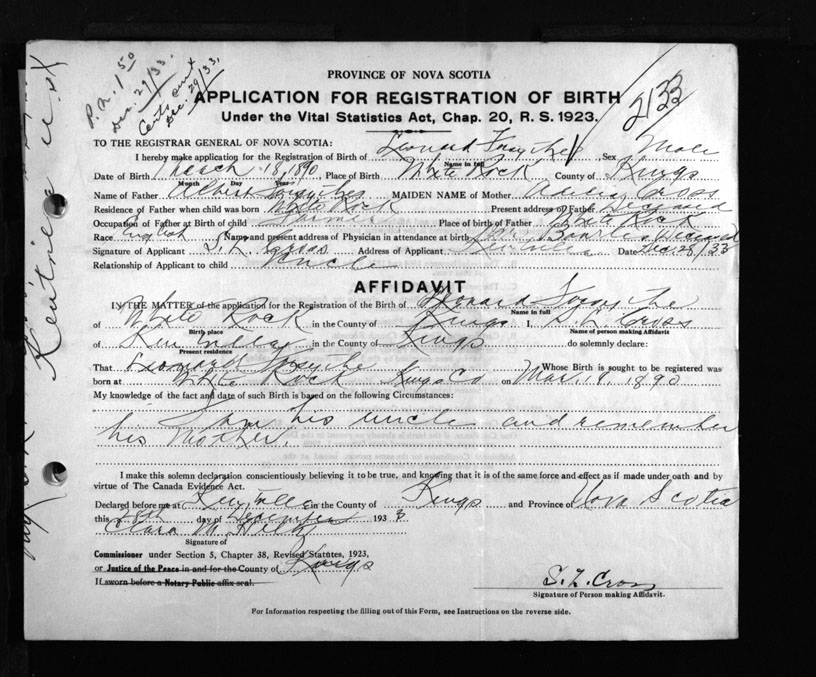 P.N. 1.50
Dec. 29/33.
Cert. sent
Dec. 29/33.
2133
PROVINCE OF NOVA SCOTIA
APPLICATION FOR REGISTRATION OF BIRTH
Under the Vital Statistics Act, Chap. 20, R. S. 1923.
TO THE REGISTRAR GENERAL OF NOVA SCOTIA:
I hereby make application for the Registration of Birth of Leonard Forsythe Sex Male
Name in full
Date of Birth March 18, 1890 Place of Birth White Rock County of Kings
Month Day Year
Name of Father Albert Forsythe MAIDEN NAME of Mother Cross
Residence of Father when child was born White Rock Present address of Father
Occupation of Father at Birth of child Farmer Place of birth of Father White Rock
Race English Name and present address of Physician in attendance at birth Deceased
Signature of Applicant S. L. Cross Address of Applicant Kentville Date Dec. 28/33
Relationship of Applicant to child Uncle
AFFIDAVIT
IN THE MATTER of the application for the Registration of the Birth of Leonard Forsythe
Name in full
of White Rock in the County of Kings I, S. L. Cross
Birth place Name of person making Affidavit
of Kentville in the County of Kings do solemnly declare:
Present residence
That Leonard Forsythe Whose Birth is sought to be registered was
born at White Rock Kings Co on Mar. 18, 1890
My knowledge of the fact and date of such Birth is based on the following Circumstances:
I am his uncle and remember
his Mother.
I make this solemn declaration conscientiously believing it to be true, and knowing that it is of the same force and effect as if made under oath and by
virtue of The Canada Evidence Act.
Declared before me at Kentville in the County of Kings and Province of Nova Scotia
this 28th day of December 1933
Clara M.
Signature of
Commissioner under Section 5, Chapter 38, Revised Statutes, 1923,
or Justice of the Peace in and for the County of Kings
If sworn before a Notary Public affix seal.
S. L. Cross
Signature of Person making Affidavit.
For Information respecting the filling out of this Form, see Instructions on the reverse side.
Kentville N.S.